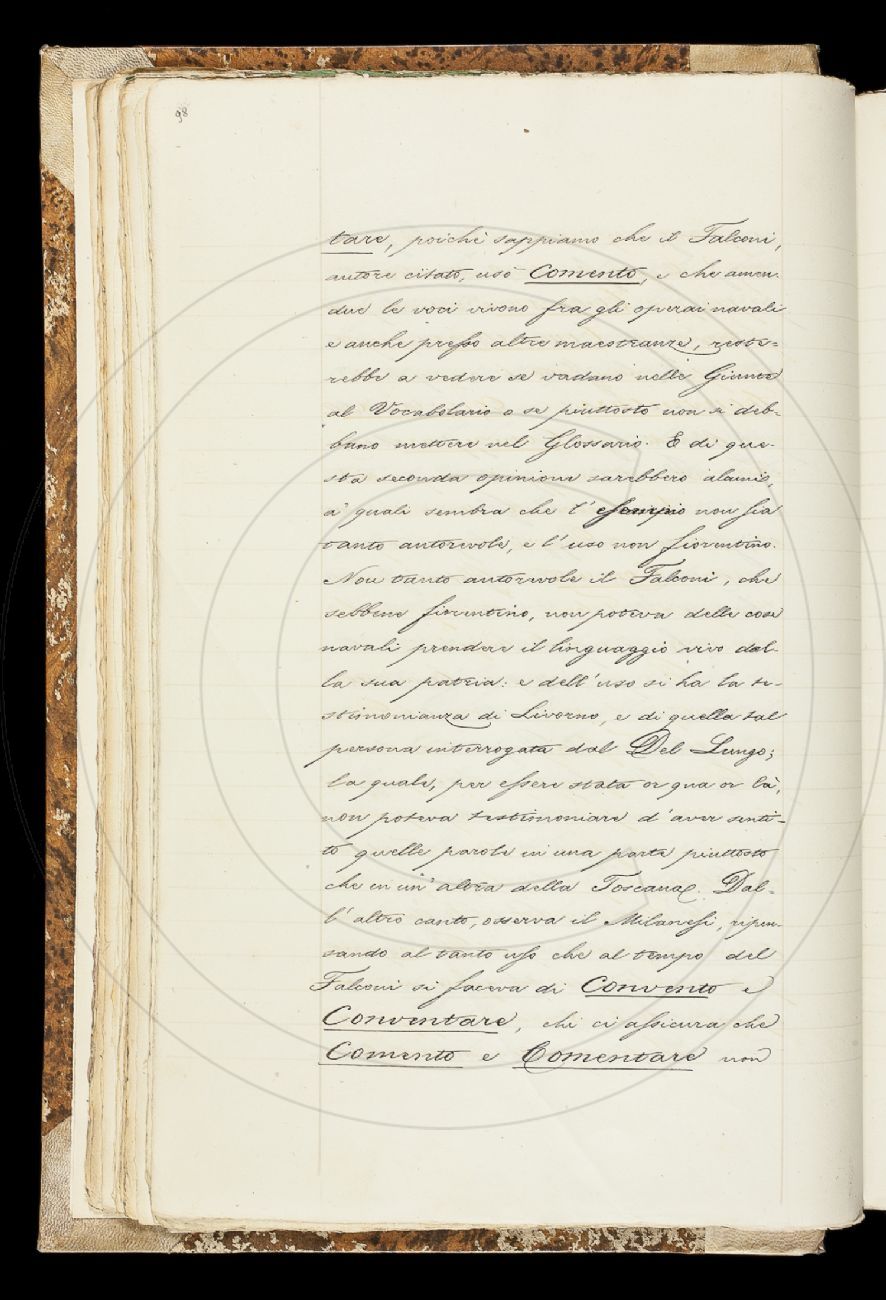 98
tare, poichè sappiamo che il Falconi,
autore citato, usò Comento, e che amen-
due le voci vivono fra gli operai navali
e anche presso altre maestranze, reste-
rebbe a vedere se vadano nelle Giunte
al Vocabolario o se piuttosto non si deb-
bano mettere nel Glossario. E di que-
sta seconda opinione sarebbero alcuni,
a' quali sembra che l'esempio non sia
tanto autorevole, e l'uso non fiorentino.
Non tanto autorevole il Falconi, che
sebbene fiorentino, non poteva delle cose
navali prendere il linguaggio vivo dal-
la sua patria: e dell'uso si ha la te-
stimonianza di Livorno, e di quella tal
persona interrogata dal Del Lungo;
la quale, per essere stata or qua or là,
non poteva testimoniare d'aver senti-
to quelle parole in una parte piuttosto
che in un'altra della Toscana. Dal-
l'altro canto, osserva il Milanesi, ripen-
sando al tanto uso che al tempo del
Falconi si faceva di Convento e
Conventare, chi ci assicura che
Comento e Comentare non